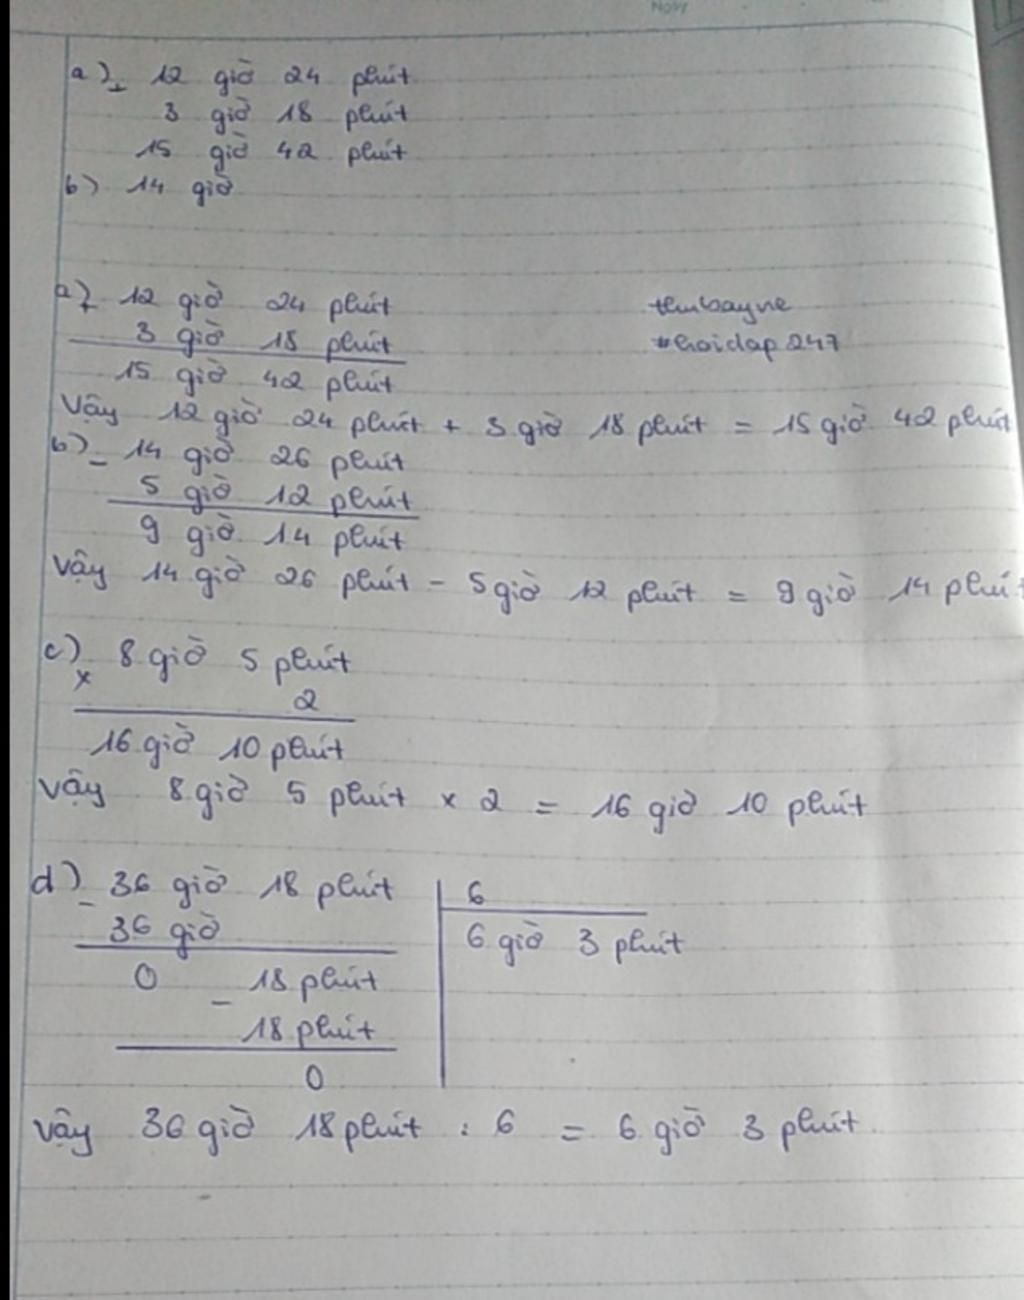 Ngày
a) + 12 giờ 24 phút
3 giờ 18 phút
15 giờ 42 phút
b) 14 giờ
a) + 12 giờ 24 phút
3 giờ 18 phút
15 giờ 42 phút
#hoidap247
Vậy 12 giờ 24 phút + 3 giờ 18 phút = 15 giờ 42 phút
b) - 14 giờ 26 phút
5 giờ 12 phút
9 giờ 14 phút
Vậy 14 giờ 26 phút - 5 giờ 12 phút = 9 giờ 14 phút
c) x 8 giờ 5 phút
2
16 giờ 10 phút
Vậy 8 giờ 5 phút x 2 = 16 giờ 10 phút
d) - 36 giờ 18 phút 6
36 giờ 6 giờ 3 phút
0 - 18 phút
18 phút
0
Vậy 36 giờ 18 phút : 6 = 6 giờ 3 phút